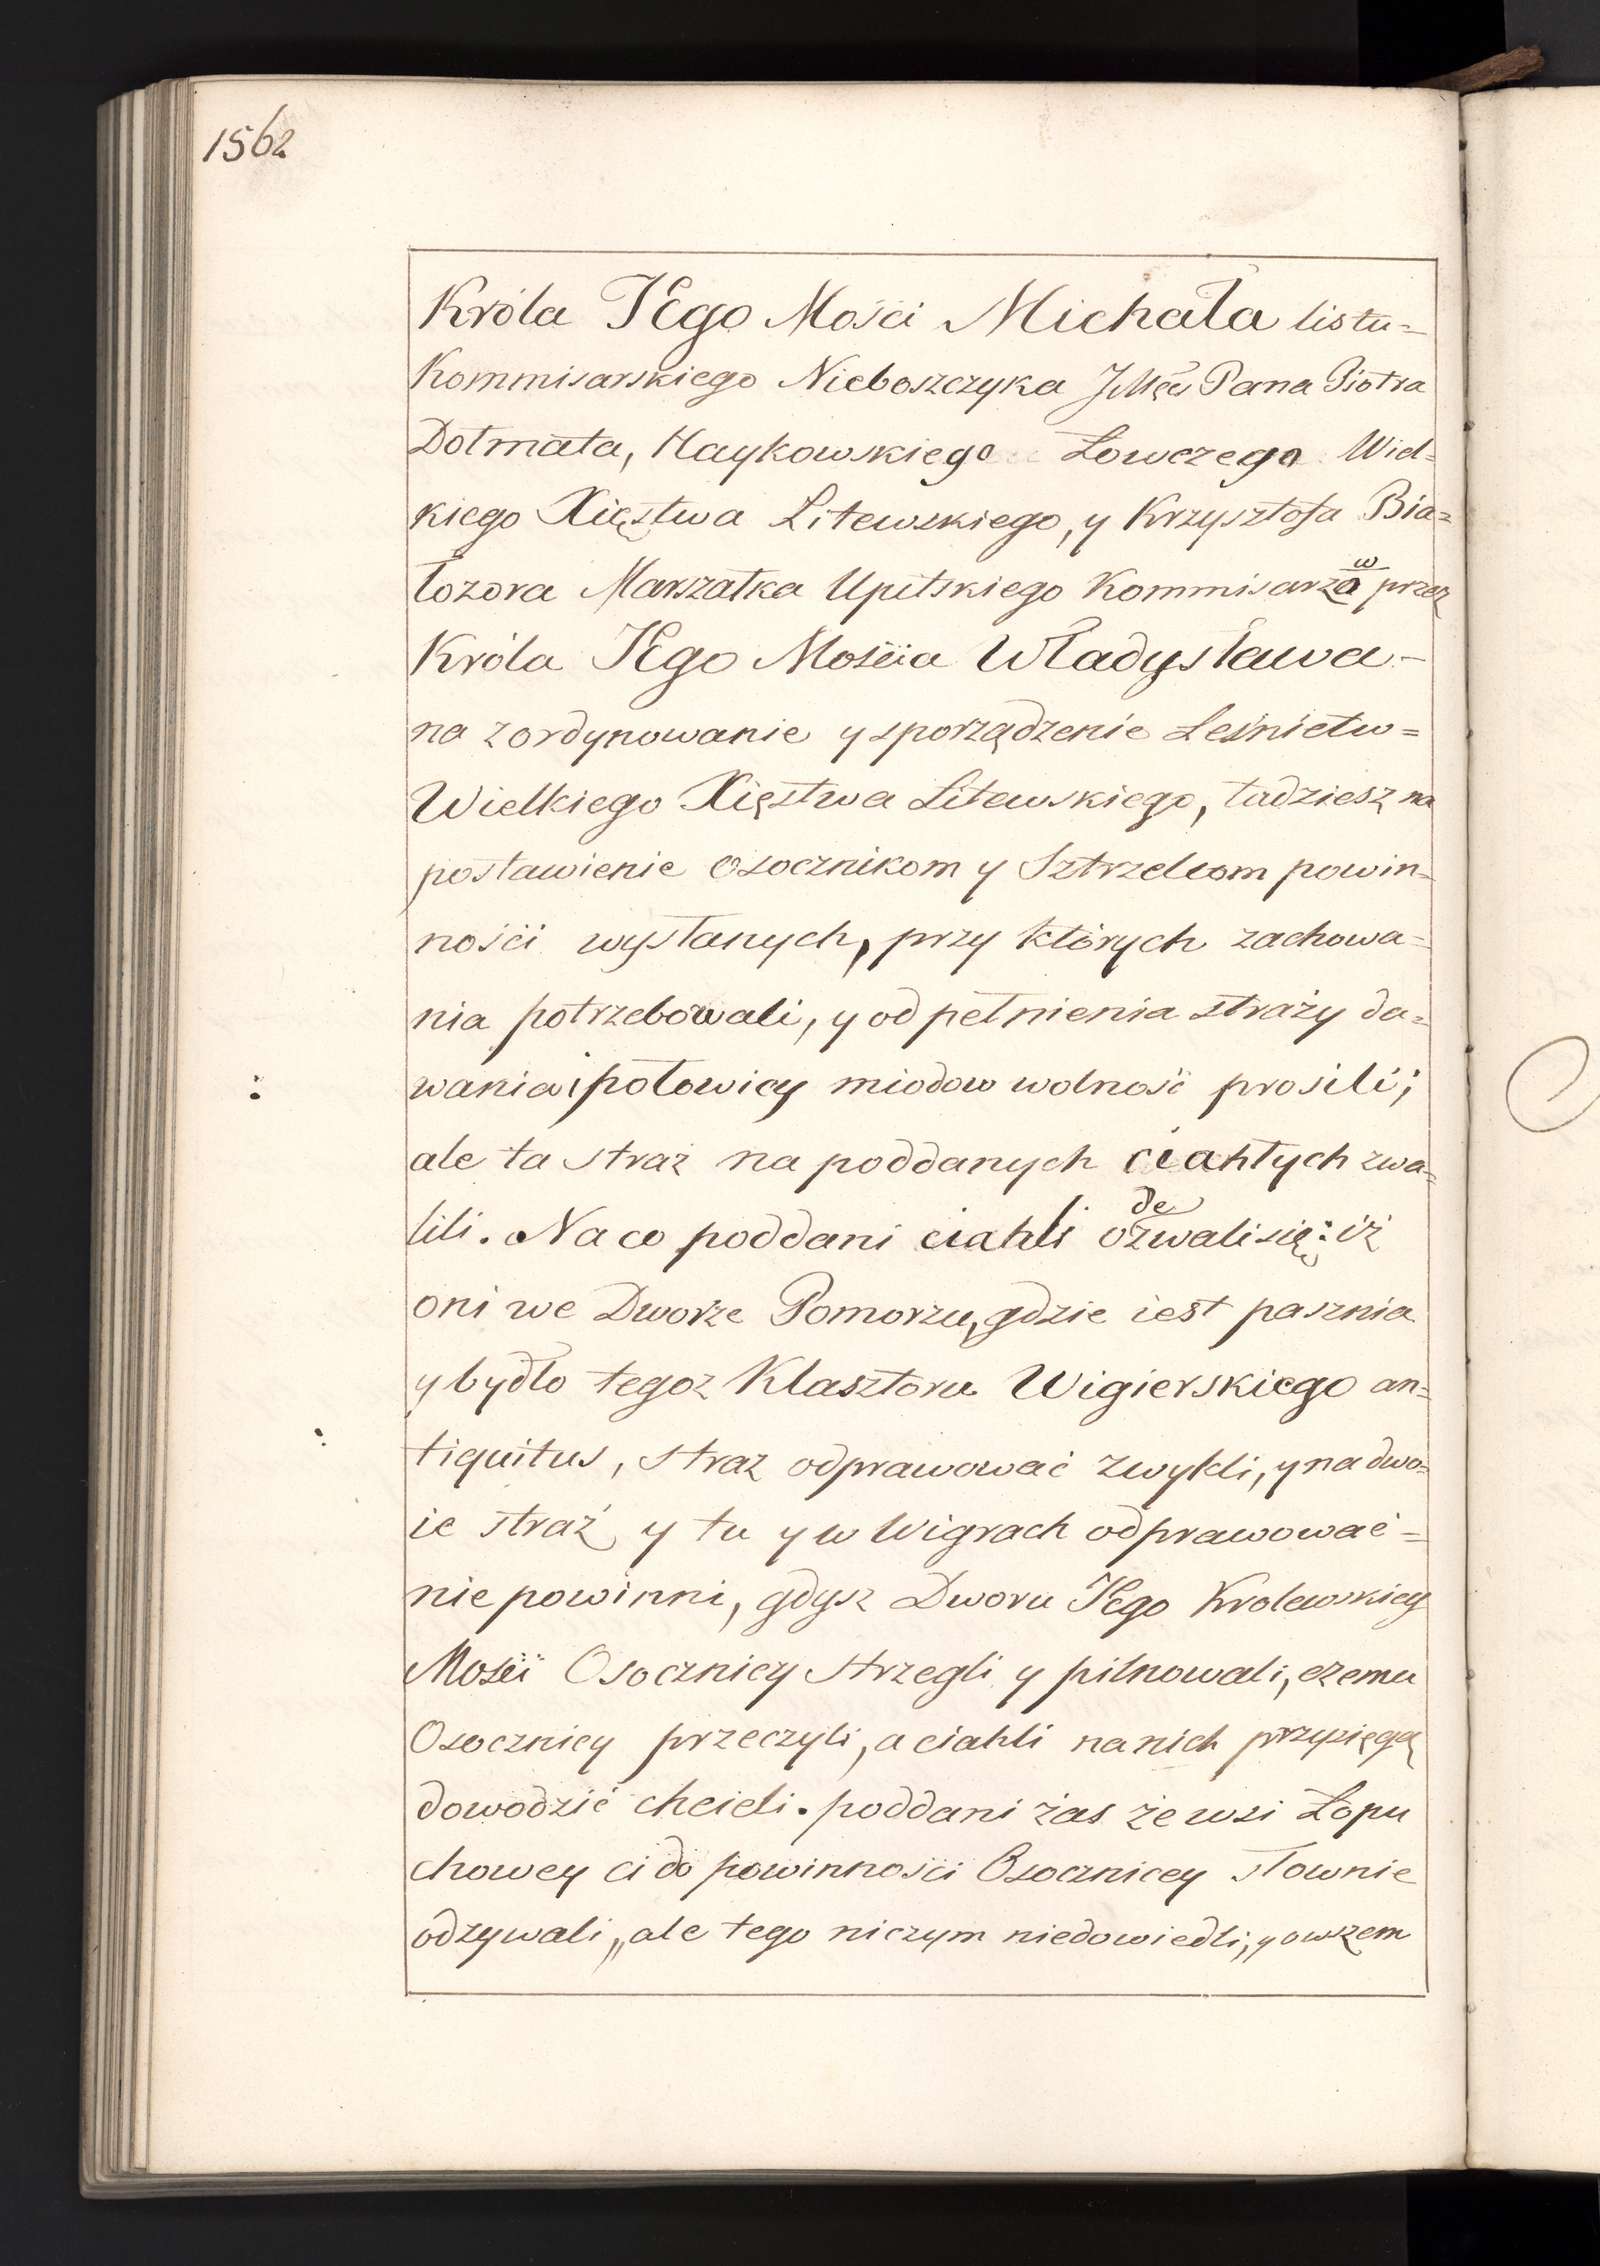 1562
Króla IEgo Mości Michała listu=
Kommisarskiego Nieboszczyka JMści Pana Piotra
Dolmata, Haykowskiego Łowczego Wiel=
kiego Xięstwa Litewskiego, y Krzysztofa Bia=
łozora Marszałka Upitskiego Kommisarza w przez
Króla IEgo Mościa Władysława-
na zordynowanie y sporządzenie Leśnictw=
Wielkiego Xięstwa Litewskiego, tudziesz na
postawienie osocznikom y Sztrzelcom powin=
nośći wysłanych, przy których zachowa=
nia potrzebowali, y od pełnienia straży da=
wania połowicy miodow wolność prosili;
ale ta straż na poddanych ciahłych zwa=
lili. Na co poddani ciahli ozwali de się: iż
oni we Dworze Pomorzu, gdzie iest pasznia
y bydło tegoz Klasztoru Wigierskiego an=
tiquitus, straz odprawować zwykli, y na dwo=
ie straż y tu y w Wigrach odprawować=
nie powinni, gdysz Dworu IEgo Krolewskiey
Mośći Osocznicy strzegli y pilnowali, czemu
Osocznicy przeczyli, a ciahli na nich przysięgą
dowodzić chcieli. poddani żas że wsi Łopu
chowey ci do powinnośći Osocznicey słownie
odzywali, ale tego niczym niedowiedli, y owszem